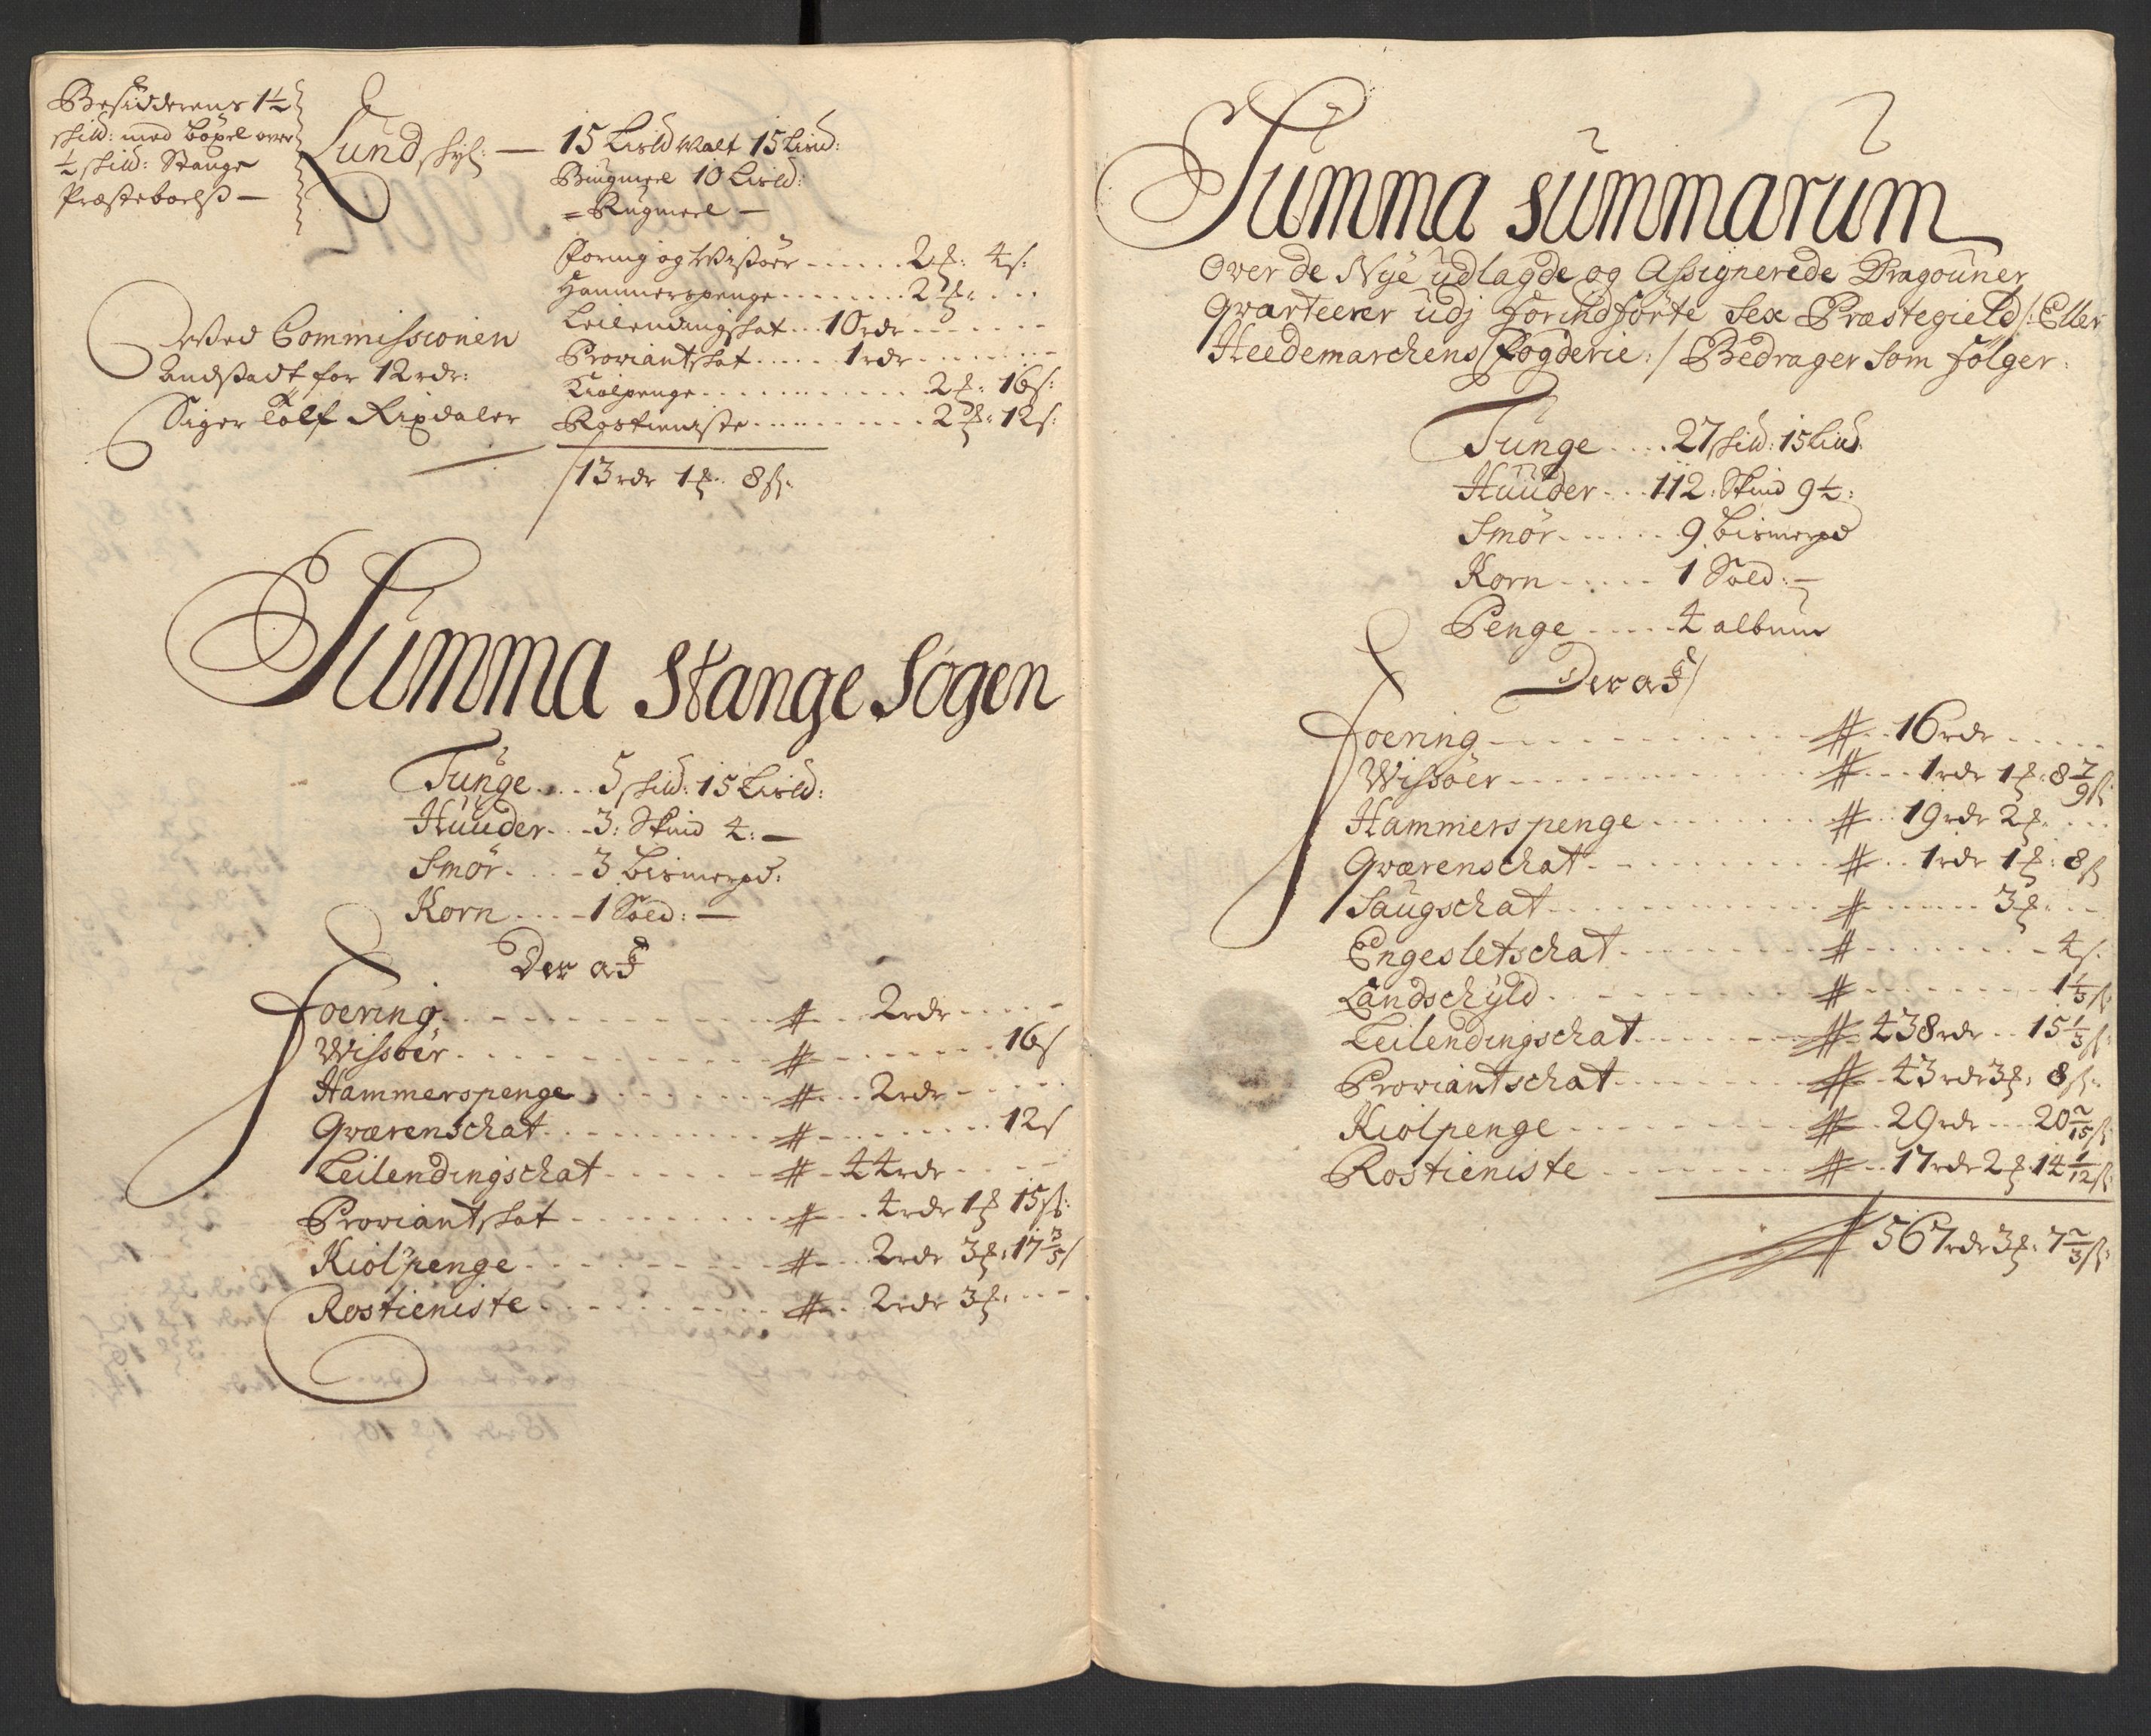 Besidderens 1½
skild: med böxel over
½ skild: Stange
Præsteboelß —
Lundskyl: — 15 Lisld Malt 15 Lisld:
Biugmeel 10 Lisld:
= Rugmeel —
Foring og Wissöer ...... 2 4 s:
Hammerspenge ........ 2
Leilendingskat ... 10 rdr
Proviantskat ..... 1 rdr
Kiolpenge ............ 2 16 s:
Rostieniste .......... 2 12 s:
13 rdr 1 8 s:
Ved Commissionen
Andstadt for 12 rdr:
Siger Tolf Rixdaler
Summa Stange Sogen
Tunge .... 5 skild: 15 Lisld:
Huuder ... 3: Skind 4: —
Smör ..... 3 bismerpd:
Korn .... 1 Sold: —
Der af
Foering # 2 rdr
Wissöer # 16 s
Hammerspenge # 2 rdr
Qværenschat # 12 s
Leilendingschat # 44 rdr
Proviantskat # 4 rdr 1 15 s:
Kiolpenge # 2 rdr 3 17 3/5 s
Rostieniste # 2 rdr 3
Summa Summarum
Over de Nye udlagde og Assignerede Dragouner
Qvarteerer udj forindförte Sex Præstegield /: Eller
Heedemarchens Fogderie :/ Bedrager Som fölger:
Tunge .... 27 skild: 15 Lisld:
Huuder ... 112: Skind 9½:
Smör ...... 9 bismerpd
Korn ..... 1 Sold: —
Penge ..... 4 album
Der af /
Foering # 16 rdr
Wissöer # 1 rdr 1 8 7/9 s
Hammerspenge # 19 rdr 2
Qværenschat # 1 rdr 1 8 s
Saugschat # 3
Engesletschat # 4 s:
Landschyld # 1 1/3 s:
Leilendingschat # 438 rdr 15 1/3 s:
Proviantschat # 43 rdr 3 8 s:
Kiolpenge # 29 rdr 20 2/15 s:
Rostieniste # 17 rdr 2 14 1/12 s:
# 567 rdr 3 7 2/3 s: